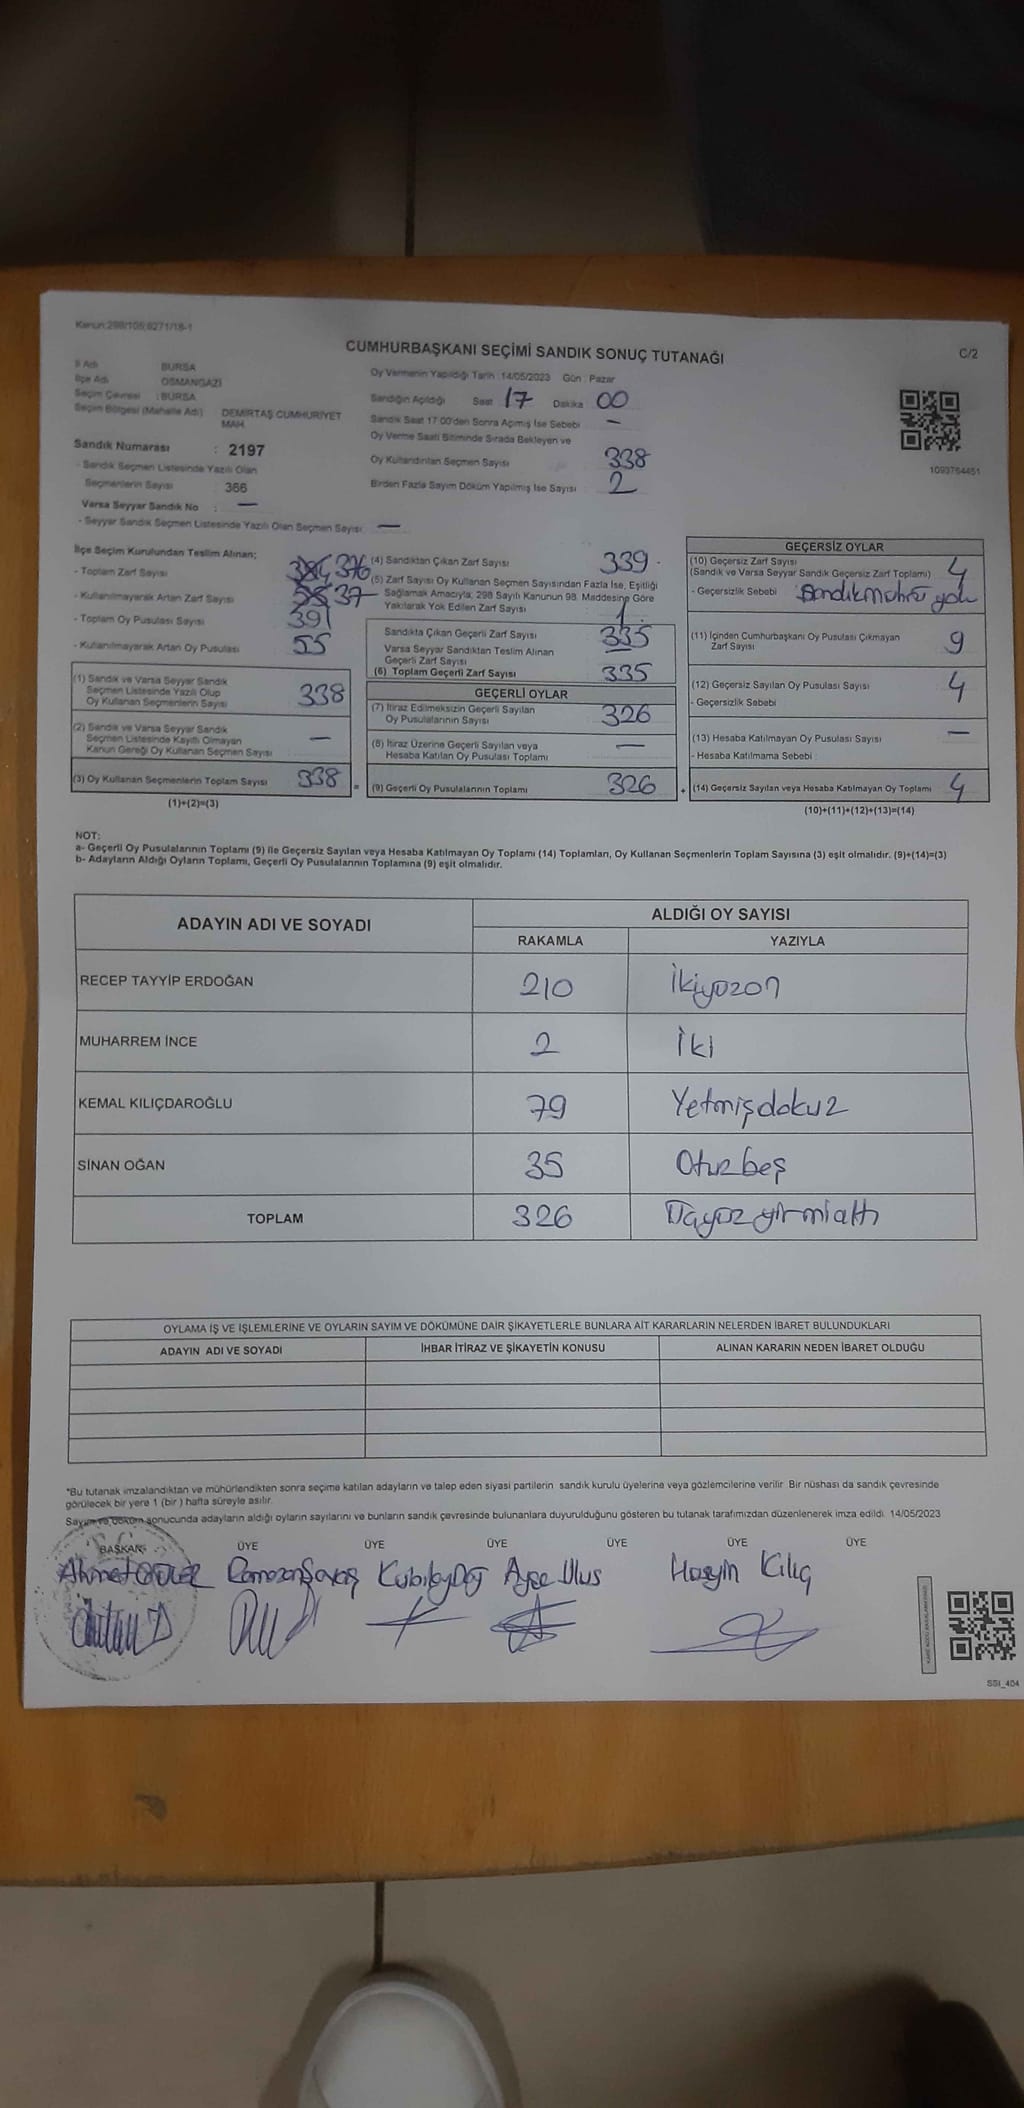 Kanun:298/105;6271/18-1
CUMHURBAŞKANI SEÇİMİ SANDIK SONUÇ TUTANAĞI
C/2
İl Adı BURSA
İlçe Adı OSMANGAZİ
Seçim Çevresi : BURSA
Seçim Bölgesi (Mahalle Adı) DEMİRTAŞ CUMHURİYET
MAH.
Sandık Numarası : 2197
- Sandık Seçmen Listesinde Yazılı Olan
Seçmenlerin Sayısı 366
Varsa Seyyar Sandık No : —
- Seyyar Sandık Seçmen Listesinde Yazılı Olan Seçmen Sayısı —
Oy Vermenin Yapıldığı Tarih : 14/05/2023 Gün : Pazar
Sandığın Açıldığı Saat 17 Dakika 00
Sandık Saat 17:00'den Sonra Açılmış İse Sebebi —
Oy Verme Saati Bitiminde Sırada Bekleyen ve
Oy Kullandırılan Seçmen Sayısı 338
Birden Fazla Sayım Döküm Yapılmış İse Sayısı 2
1093764451
İlçe Seçim Kurulundan Teslim Alınan;
- Toplam Zarf Sayısı 376
- Kullanılmayarak Artan Zarf Sayısı 37
- Toplam Oy Pusulası Sayısı 391
- Kullanılmayarak Artan Oy Pusulası 55
(1) Sandık ve Varsa Seyyar Sandık
Seçmen Listesinde Yazılı Olup
Oy Kullanan Seçmenlerin Sayısı 338
(2) Sandık ve Varsa Seyyar Sandık
Seçmen Listesinde Kayıtlı Olmayan
Kanun Gereği Oy Kullanan Seçmen Sayısı —
(3) Oy Kullanan Seçmenlerin Toplam Sayısı 338
(1)+(2)=(3)
(4) Sandıktan Çıkan Zarf Sayısı 339
(5) Zarf Sayısı Oy Kullanan Seçmen Sayısından Fazla İse, Eşitliği
Sağlamak Amacıyla, 298 Sayılı Kanunun 98. Maddesine Göre
Yakılarak Yok Edilen Zarf Sayısı 1
Sandıkta Çıkan Geçerli Zarf Sayısı 335
Varsa Seyyar Sandıktan Teslim Alınan
Geçerli Zarf Sayısı
(6) Toplam Geçerli Zarf Sayısı 335
GEÇERLİ OYLAR
(7) İtiraz Edilmeksizin Geçerli Sayılan
Oy Pusulalarının Sayısı 326
(8) İtiraz Üzerine Geçerli Sayılan veya
Hesaba Katılan Oy Pusulası Toplamı —
= (9) Geçerli Oy Pusulalarının Toplamı 326
GEÇERSİZ OYLAR
(10) Geçersiz Zarf Sayısı
(Sandık ve Varsa Seyyar Sandık Geçersiz Zarf Toplamı) 4
- Geçersizlik Sebebi Sandık mührü yok
(11) İçinden Cumhurbaşkanı Oy Pusulası Çıkmayan
Zarf Sayısı 9
(12) Geçersiz Sayılan Oy Pusulası Sayısı 4
- Geçersizlik Sebebi
(13) Hesaba Katılmayan Oy Pusulası Sayısı —
- Hesaba Katılmama Sebebi
+ (14) Geçersiz Sayılan veya Hesaba Katılmayan Oy Toplamı 4
(10)+(11)+(12)+(13)=(14)
NOT:
a- Geçerli Oy Pusulalarının Toplamı (9) ile Geçersiz Sayılan veya Hesaba Katılmayan Oy Toplamı (14) Toplamları, Oy Kullanan Seçmenlerin Toplam Sayısına (3) eşit olmalıdır. (9)+(14)=(3)
b- Adayların Aldığı Oyların Toplamı, Geçerli Oy Pusulalarının Toplamına (9) eşit olmalıdır.
ADAYIN ADI VE SOYADI ALDIĞI OY SAYISI
RAKAMLA YAZIYLA
RECEP TAYYİP ERDOĞAN 210 İkiyüzon
MUHARREM İNCE 2 İki
KEMAL KILIÇDAROĞLU 79 Yetmişdokuz
SİNAN OĞAN 35 Otuzbeş
TOPLAM 326 Üçyüzyirmialtı
OYLAMA İŞ VE İŞLEMLERİNE VE OYLARIN SAYIM VE DÖKÜMÜNE DAİR ŞİKAYETLERLE BUNLARA AİT KARARLARIN NELERDEN İBARET BULUNDUKLARI
ADAYIN ADI VE SOYADI İHBAR İTİRAZ VE ŞİKAYETİN KONUSU ALINAN KARARIN NEDEN İBARET OLDUĞU
*Bu tutanak imzalandıktan ve mühürlendikten sonra seçime katılan adayların ve talep eden siyasi partilerin sandık kurulu üyelerine veya gözlemcilerine verilir. Bir nüshası da sandık çevresinde
görülecek bir yere 1 (bir ) hafta süreyle asılır.
Sayım ve döküm sonucunda adayların aldığı oyların sayılarını ve bunların sandık çevresinde bulunanlara duyurulduğunu gösteren bu tutanak tarafımızdan düzenlenerek imza edildi. 14/05/2023
BAŞKAN ÜYE ÜYE ÜYE ÜYE ÜYE ÜYE
Ahmet Ramazan Savaş Kubilay Dağ Ayşe Ulus Hüseyin Kılıç
SSI_404